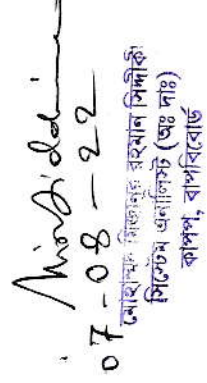 07-08-22
মোহাম্মদ মিজানুর রহমান সিদ্দিকী
সিস্টেম এনালিস্ট (অঃ দাঃ)
বাপবিবোর্ড